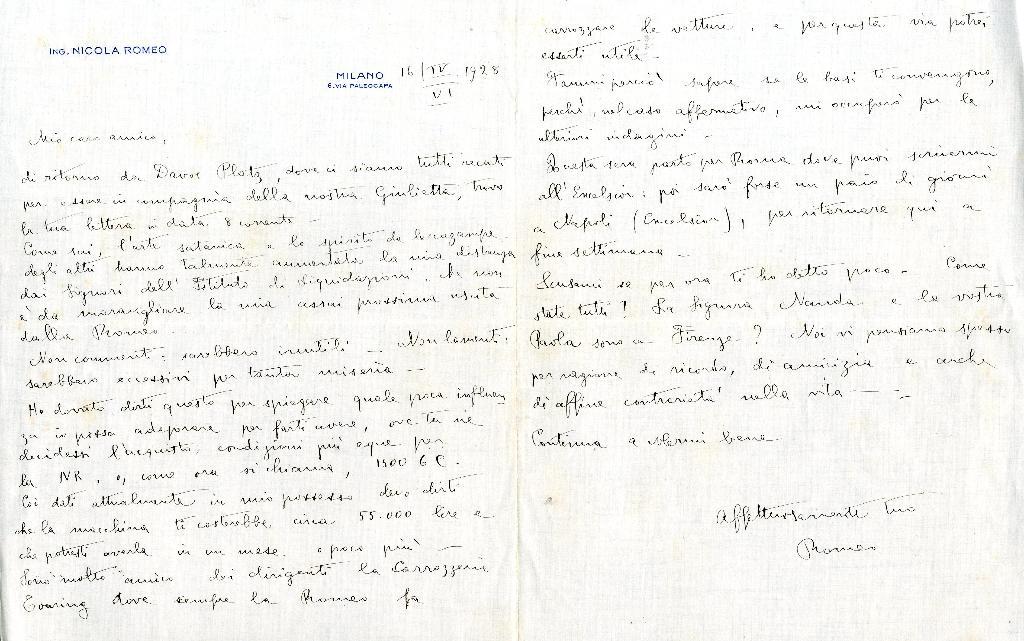 ING. NICOLA ROMEO
MILANO
6. VIA PALEOCAPA
16/IV 1928
VI
Mio caro amico,
di ritorno da Davos Platz, dove ci siamo tutti recati
per essere in compagnia della nostra Giulietta, trovo
la tua lettera in data 8 corrente.
Come sai, l'arte satanica e lo spirito da
degli altri hanno talmente aumentata la mia distanza
dai Signori dell'Istituto di Liquidazioni, che non
è da maravigliare la mia assai prossima uscita
dalla Romeo.
Non commenti: sarebbero inutili — Non lamenti:
sarebbero eccessivi per tanta miseria —
Ho dovuto dirti questo per spiegare quale poca influen
za io possa adoperare per farti avere, ove tu ne
decidessi l'acquisto, condizioni più eque per
la NR, o, come ora si chiama, 1500 6 C.
Coi dati attualmente in mio possesso devo dirti
che la macchina ti costerebbe circa 55.000 lire e
che potresti averla in un mese o poco più —
Sono molto amico dei dirigenti la Carrozzeria
Touring dove sempre la Romeo fa
carrozzare le vetture, e per questa via potrei
esserti utile.
Fammi perciò sapere se le basi ti convengono,
perché, nel caso affermativo, mi occuperò per le
ulteriori indagini —
Questa sera parto per Roma dove puoi scrivermi
all'Excelsior: poi sarò forse un paio di giorni
a Napoli (Excelsior), per ritornare qui a
fine settimana —
Scusami se per ora ti ho detto poco — Come
state tutti? La Signora Nanda e la vostra
Paola sono a Firenze? Noi vi pensiamo spesso
per ragione di ricordo, di amicizia e anche
di affine contrarietà nella vita —
Continua a volermi bene.
Affettuosamente tuo
Romeo